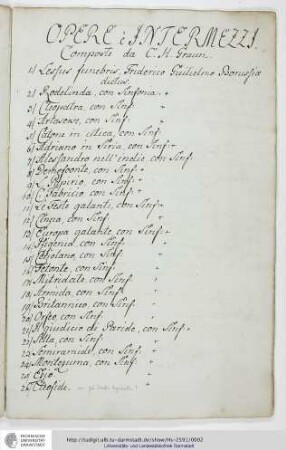 OPERE è INTERMEZZI
Composte da C. H. Graun.
1/ Lessus funebris, Friderico Guilielmo Borussiæ
dictus.
2/ Rodelinda, con Sinfonia.
3/ Cleopatra, con Sinf.
4/ Artaserse, con Sinf.
5/ Catone in Utica, con Sinf.
6/ Adriano in Siria, con Sinf.
7/ Alessandro nell'Indie con Sinf.
8/ Demofoonte, con Sinf.
9/ L. Papirio, con Sinf.
10/ C. Fabricio, con Sinf.
11/ Le Feste galanti, con Sinf.
12/ Cinna, con Sinf
13/ Europa galante, con Sinf.
14/ Ifigenia, con Sinf.
15/ Coriolano, con Sinf.
16/ Fetonte, con Sinf.
17/ Mitridate, con Sinf.
18/ Armida, con Sinf.
19/ Britannico, con Sinf.
20/ Orfeo, con Sinf.
21/ Il Giudicio di Paride, con Sinf.
22/ Silla, con Sinf.
23/ Semiramide, con Sinf.
24/ Montezuma, con Sinf.
25/ Ezio
26/
http://tudigit.ulb.tu-darmstadt.de/show/Hs-2591/0002
Universitäts- und Landesbibliothek Darmstadt